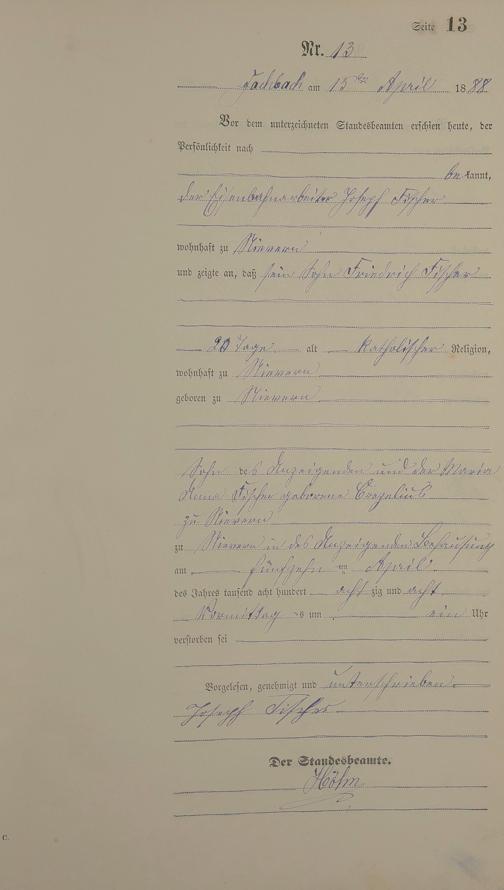 Seite 13
Nr. 13
Fachbach am 15ten April 1888
Vor dem unterzeichneten Standesbeamten erschien heute, der
Persönlichkeit nach
bekannt,
der Eisenbahnarbeiter Joseph Fischer
wohnhaft zu Nievern
und zeigte an, daß sein Sohn Friedrich Fischer
20 Tage alt katholischer Religion,
wohnhaft zu Nievern
geboren zu Nievern
Sohn des Anzeigenden und der Maria
Anna Fischer geborene Crezelius
zu Nievern
zu Nievern in des Anzeigenden Behausung
am fünfzehn ten April
des Jahres tausend acht hundert acht zig und acht
Vormittag s um ein Uhr
verstorben sei
Vorgelesen, genehmigt und unterschrieben.
Joseph Fischer
Der Standesbeamte.
Höhn
C.